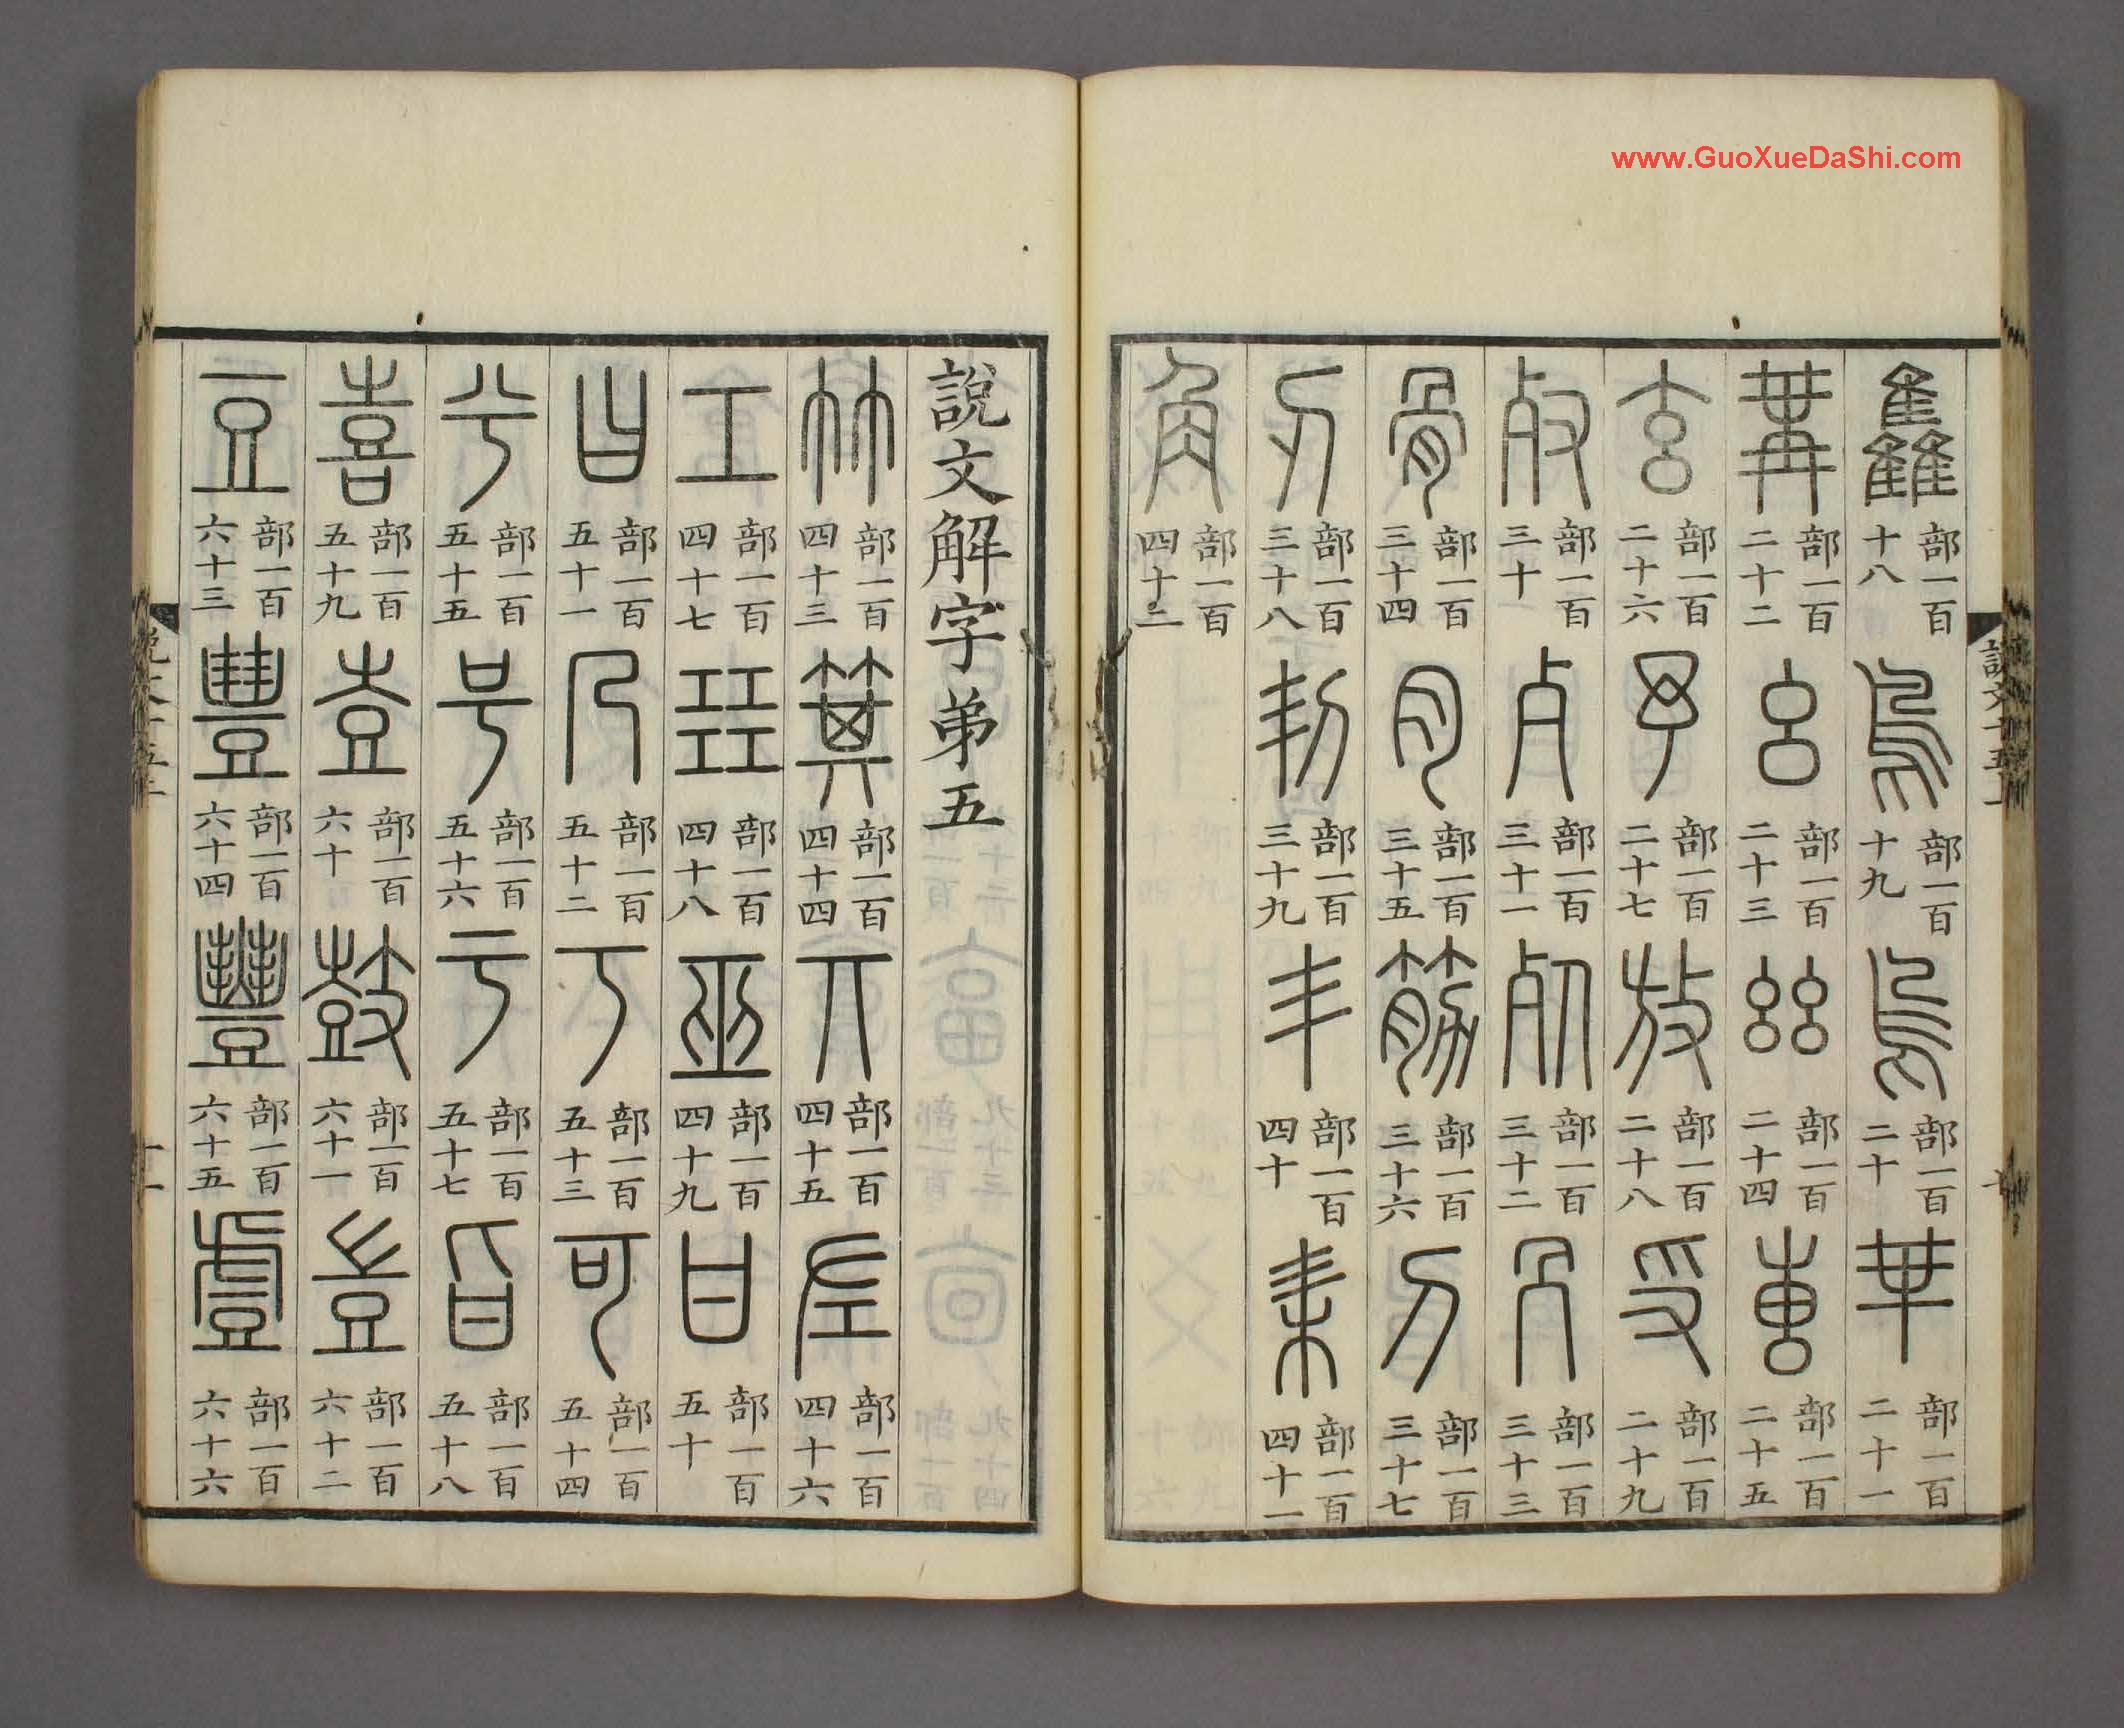 說文十五上
雥部一百十八 鳥部一百十九 烏部一百二十 𠦒部一百二十一
冓部一百二十二 幺部一百二十三 𢆶部一百二十四 叀部一百二十五
玄部一百二十六 予部一百二十七 放部一百二十八 𠬪部一百二十九
𣦼部一百三十 歺部一百三十一 死部一百三十二 冎部一百三十三
骨部一百三十四 肉部一百三十五 筋部一百三十六 刀部一百三十七
刃部一百三十八 㓞部一百三十九 丯部一百四十 耒部一百四十一
角部一百四十二
說文解字弟五
竹部一百四十三 箕部一百四十四 丌部一百四十五 左部一百四十六
工部一百四十七 㠭部一百四十八 巫部一百四十九 甘部一百五十
曰部一百五十一 乃部一百五十二 丂部一百五十三 可部一百五十四
兮部一百五十五 号部一百五十六 亏部一百五十七 旨部一百五十八
喜部一百五十九 壴部一百六十 鼓部一百六十一 豈部一百六十二
豆部一百六十三 豊部一百六十四 豐部一百六十五 䖒部一百六十六
www.GuoXueDaShi.com